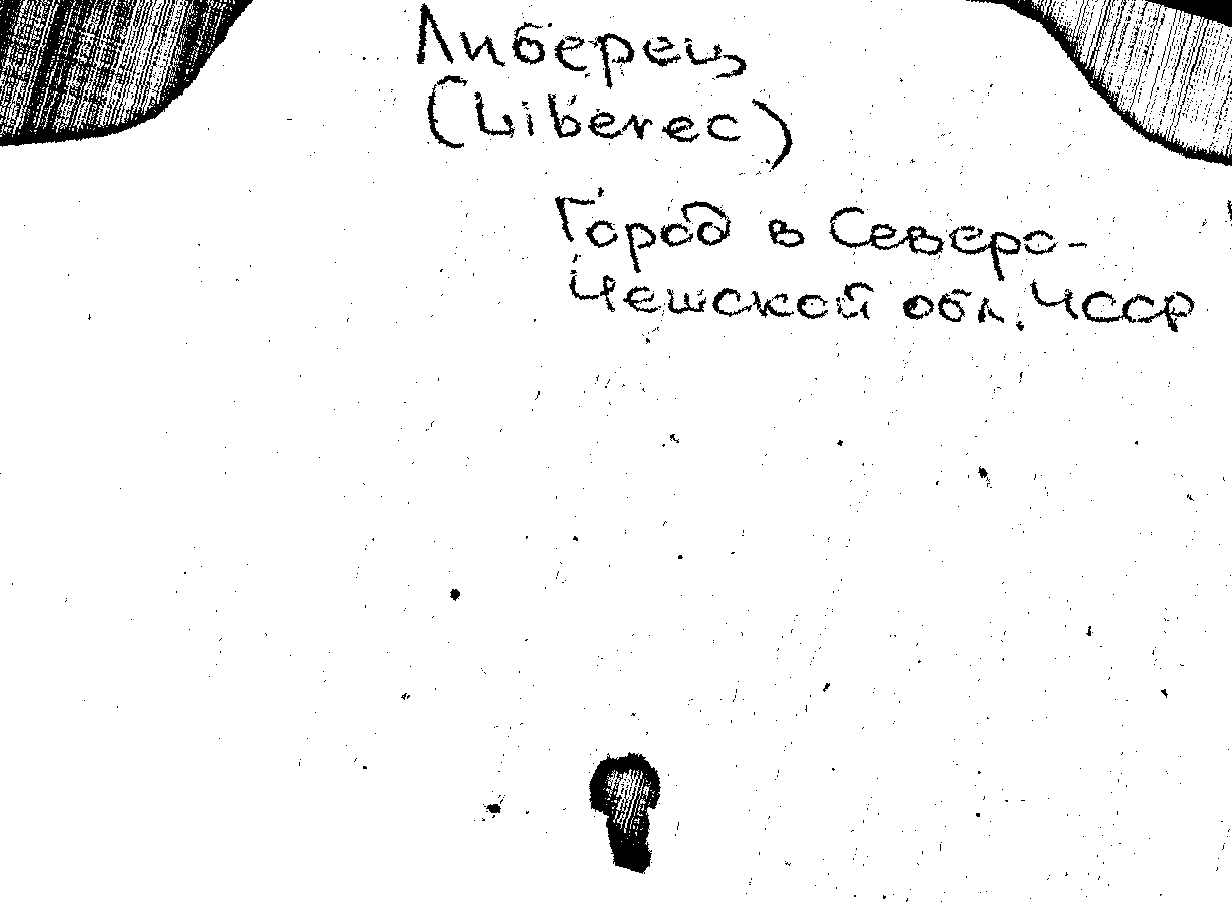 Либерец
(Liberec)
Город в Северо-
Чешской обл. ЧССР